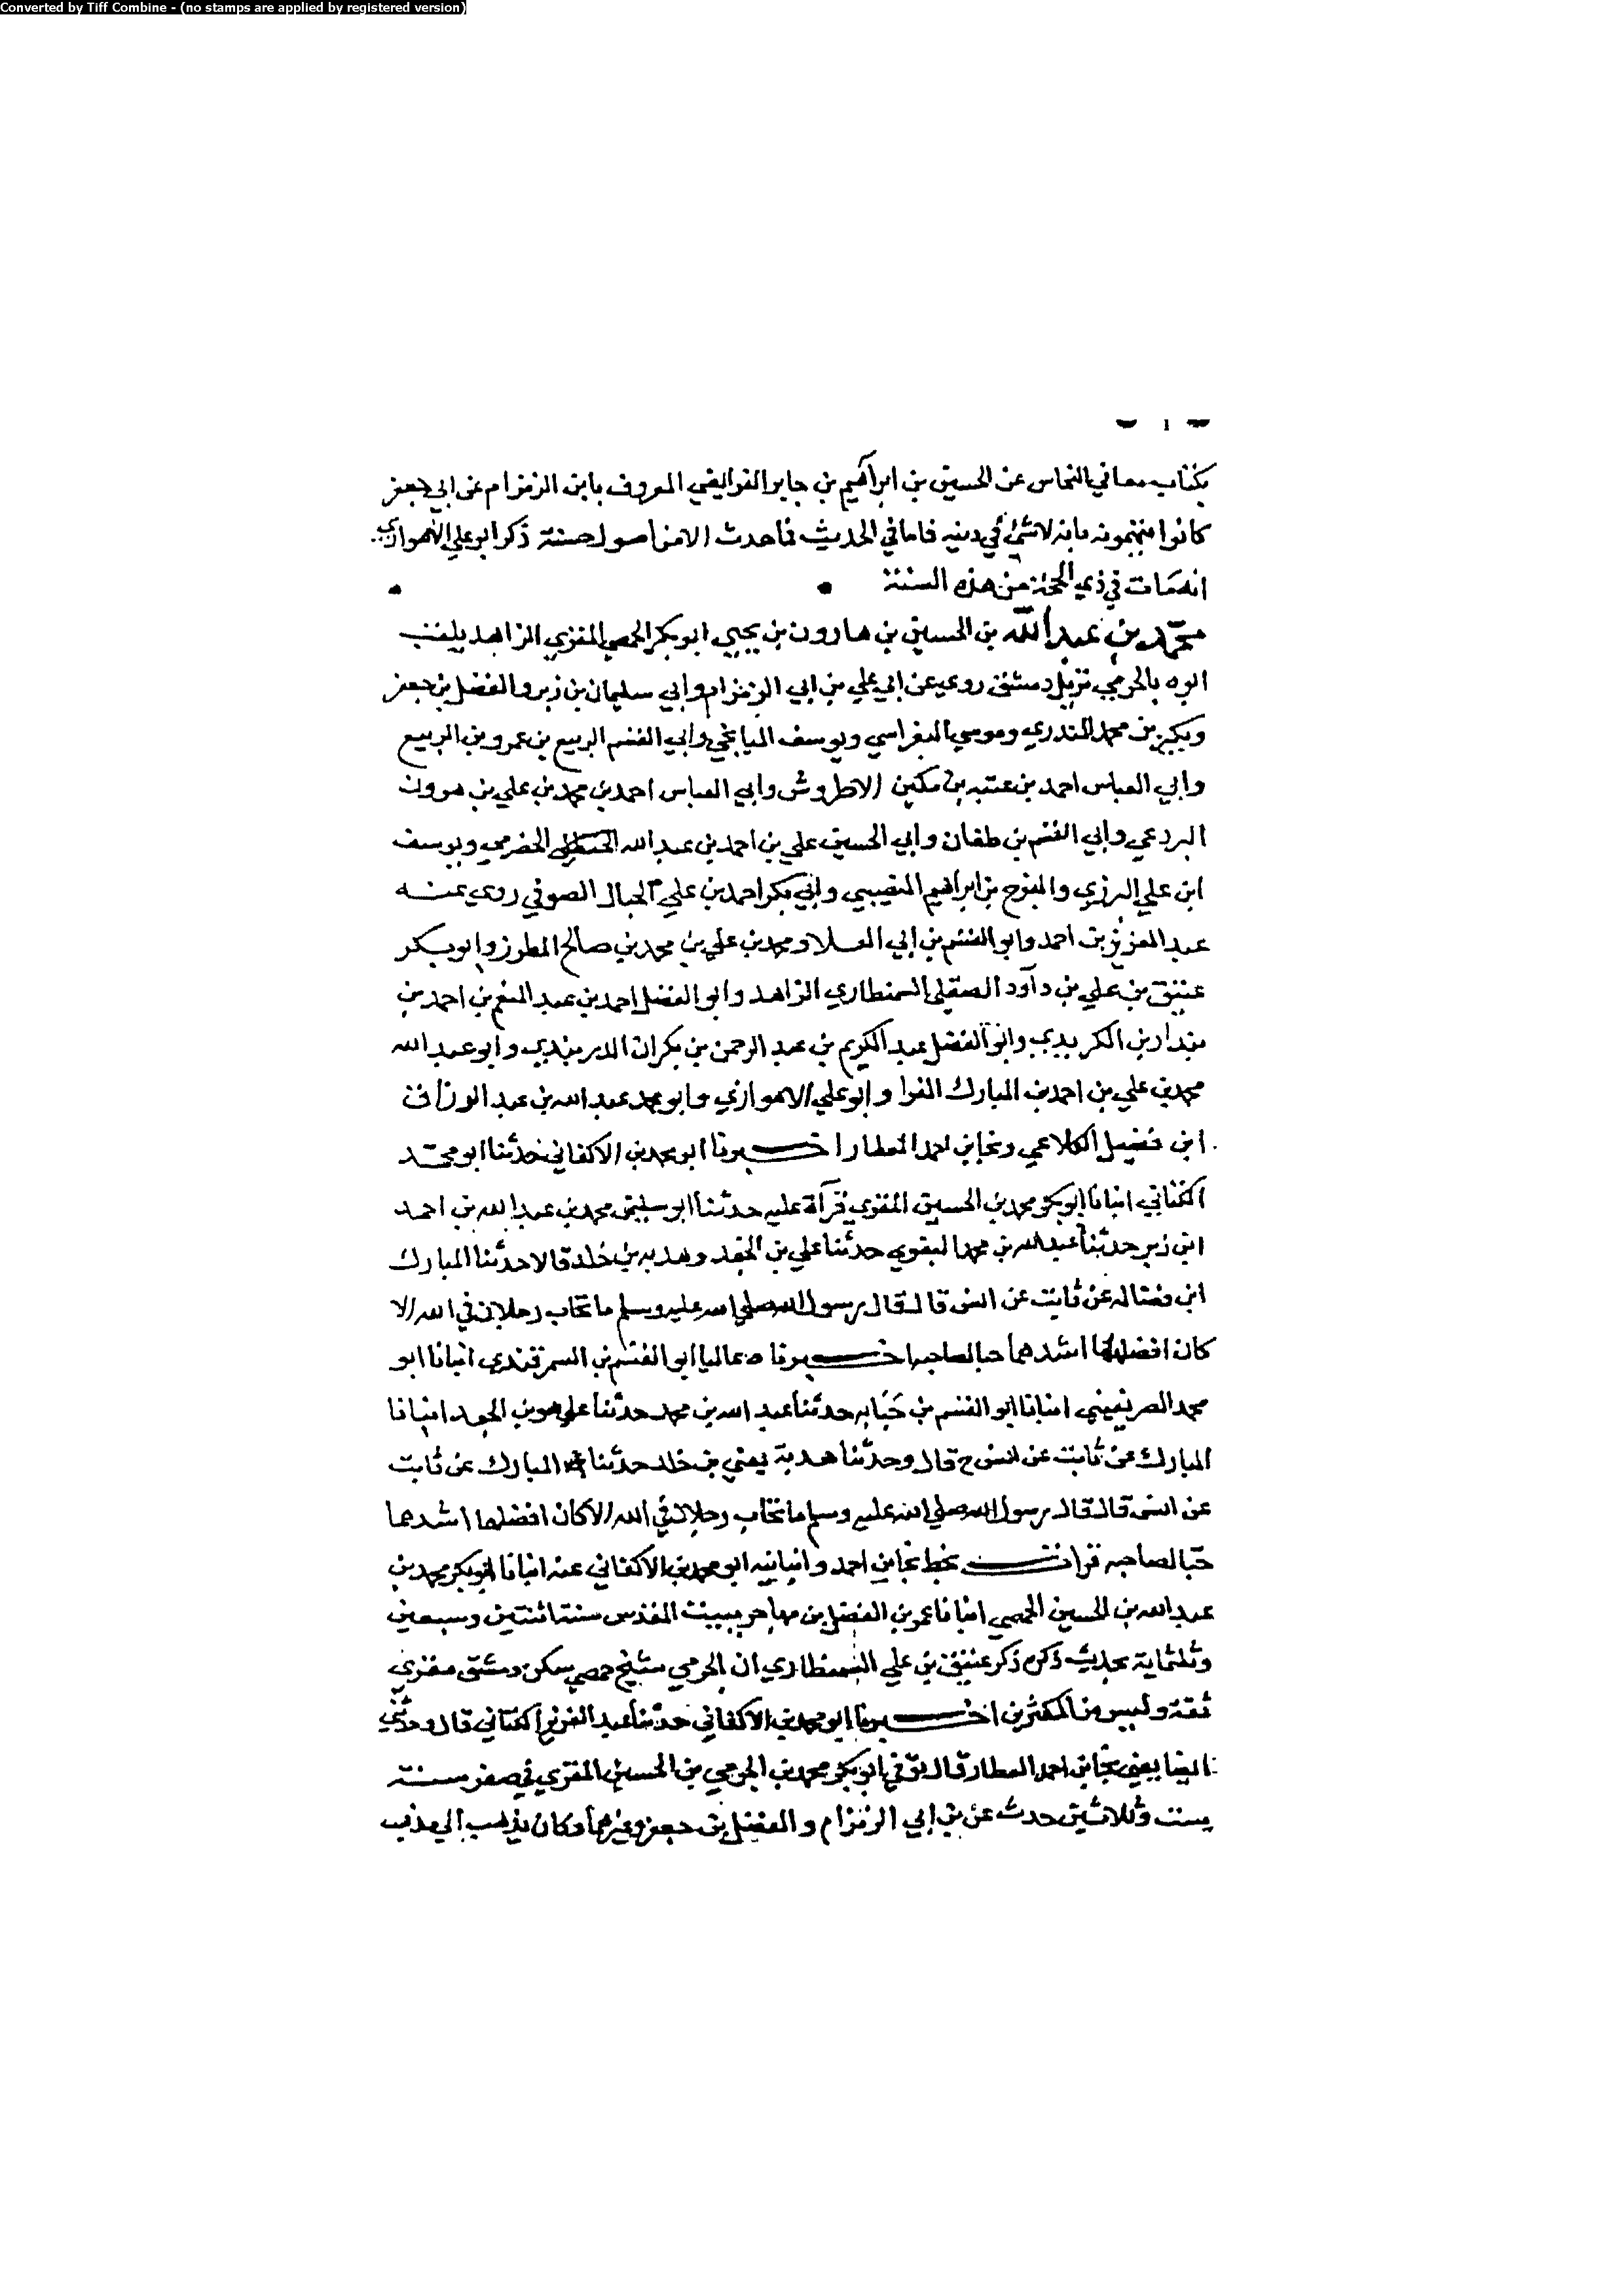 Converted by Tiff Combine - (no stamps are applied by registered version)
١
بكتاب معاني النحاس عن الحسين بن ابراهيم بن جابر الفرائضي المعروف بابن الزمزام عن ابي جعفر
كانوا يتهمونه بانه لا شئ في دينه فاما في الحديث فما حدث الا من اصول حسنة ذكر ابو علي الاهوازي
انه مات في ذي الحجة من هذه السنة
محمد بن عبد الله بن الحسين بن هارون بن يحيى ابو بكر الحمصي المقري الزاهد يلقب
ابوه بالجرمي نزيل دمشق روى عن ابي علي بن ابي الزمزام وابي سليمان بن زبر والفضل بن جعفر
وبكير بن محمد المنذري وموسي ويوسف الميانجي وابي القسم الربيع بن عمرو بن الربيع
وابي العباس احمد بن عتبه بن مكين الاطروش وابي العباس احمد بن محمد بن علي بن هرون
البردعي وابي القسم بن طغان وابي الحسين علي بن احمد بن عبد الله الحضرمي ويوسف
ابن علي الرزي والمفرح بن ابراهيم النصيبي وابي بكر احمد بن علي الحبال الصوفي روى عنه
عبد العزيز بن احمد وابو القسم بن ابي العلا ومحمد بن علي بن محمد بن صالح المطرز وابو بكر
عتيق بن علي بن داود الصقلي السمنطاري الزاهد وابو الفضل احمد بن عبد المنعم بن احمد بن
بندار بن الكريدي وابو الفضل عبد الكريم بن عبد الرحمن بن بكران الدربندي وابو عبد الله
محمد بن علي بن احمد بن المبارك الفرا وابو علي الاهوازي وابو محمد عبد الله بن عبد الرزاق
ابن فضيل الكلاعي ونجا بن احمد العطار اخبرنا ابو محمد بن الاكفاني حدثنا ابو محمد
الكتاني انبانا ابو بكر محمد بن الحسين المقري قرآة عليه حدثنا ابو سليمن محمد بن عبد الله بن احمد
ابن زبر حدثنا عبد الله بن محمد البغوي حدثنا علي بن الجعد وهدبه بن خلد قالا حدثنا المبارك
ابن فضاله عن ثابت عن انس قال قال رسول الله صلى الله عليه وسلم ما تحاب رجلان في الله الا
كان افضلهما اشدهما حبا لصاحبه اخبرنا ه عاليا ابو القسم بن السمرقندي انبانا ابو
محمد الصريفيني انبانا ابو القسم بن حبابه حدثنا عبد الله بن محمد حدثنا علي هو بن الجعد انبانا
المبارك عن ثابت عن انس ح قال وحدثنا هدبة يعني بن خلد حدثنا المبارك عن ثابت
عن انس قال قال رسول الله صلى الله عليه وسلم ما تحاب رجلان في الله الا كان افضلهما اشدهما
حبا لصاحبه قرات بخط نجا بن احمد وانبانيه ابو محمد بن الاكفاني عنه انبانا ابو بكر محمد بن
عبد الله بن الحسين الحمصي انبانا عمر بن الفضل بن مهاجر ببيت المقدس سنة اثنتين وسبعين
وثلثماية بحديث ذكره ذكر عتيق بن علي السمنطاري ان الجرمي شيخ حمصي سكن دمشق مقري
ثقة وليس من المكثرين اخبرنا ابو محمد بن الاكفاني حدثنا عبد العزيز الكتاني قال وحدثني
ايضا يعني نجا بن احمد العطار قال توفي ابو بكر محمد بن الجرمي بن الحسين المقري في صفر سنة
ست وثلاثين حدث عن بن ابي الزمزام والفضل بن جعفر وغيرهما وكان يذهب الي مذهب